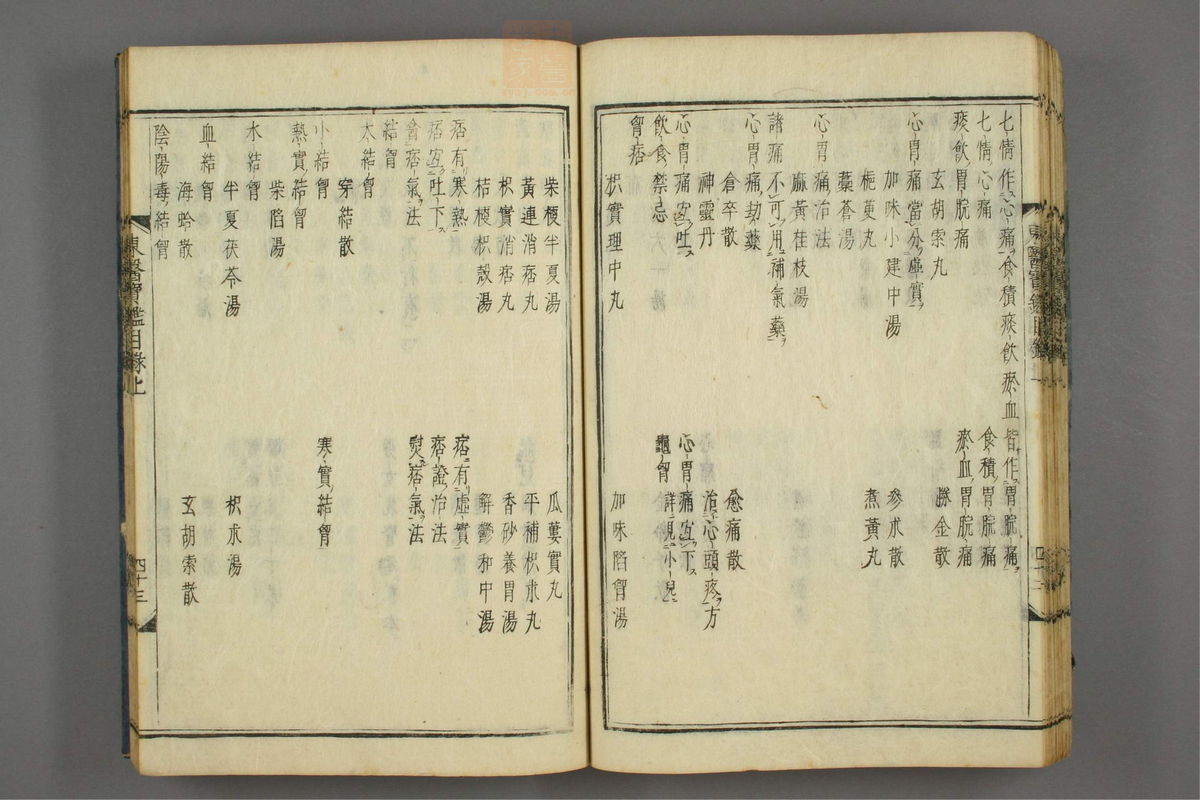 七情作心痛食積痰飲瘀血皆作胃脘痛
七情心痛 食積胃脘痛
痰飲胃脘痛 瘀血胃脘痛
玄胡索丸 勝金散
心胃痛當分虛實
加味小建中湯 參朮散
梔萸丸 煮黃丸
藁蒼湯
心胃痛治法
麻黃桂枝湯
諸痛不可用補氣藥
心胃痛劫藥
倉卒散 愈痛散
神靈丹 治心頭疼方
心胃痛宜吐 心胃痛宜下
飲食禁忌 龜胷詳見小兒
胷痞
枳實理中丸 加味陷胷湯
東醫寶鑑目錄上
柴梗半夏湯 瓜蔞實丸
黃連消痞丸 平補枳朮丸
枳實消痞丸 香砂養胃湯
桔梗枳殼湯 解鬱和中湯
痞有寒熱 痞有虛實
痞宜吐下 痞證治法
胷痞氣法 熨痞氣法
結胷
大結胷
穿結散
小結胷 寒實結胷
熱實結胷
柴陷湯
水結胷
半夏茯苓湯 枳朮湯
血結胷
海蛤散 玄胡索散
陰陽毒結胷
東醫寶鑑目錄上
四十三